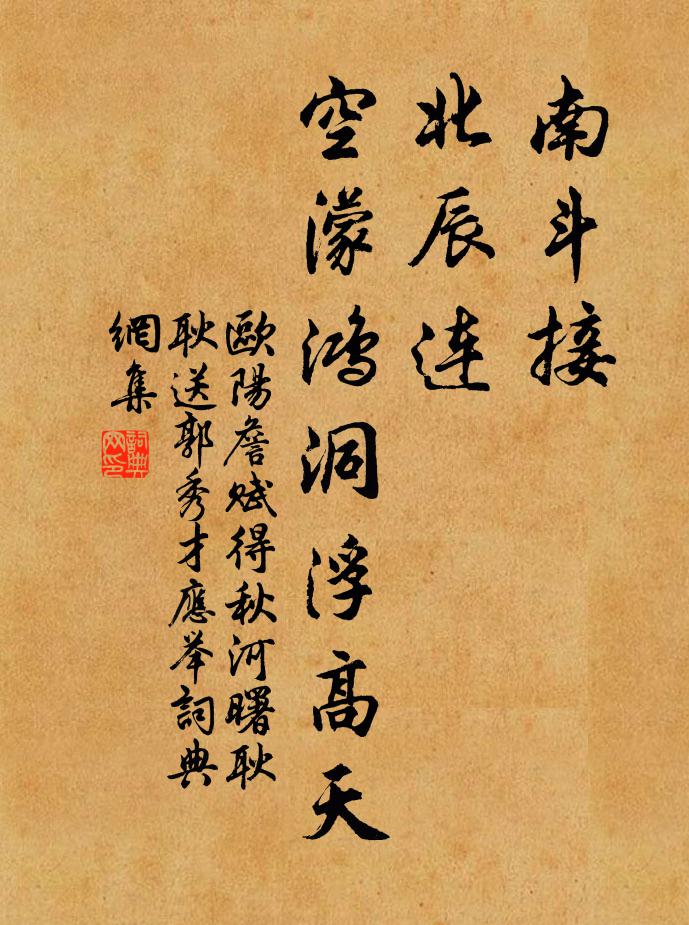 南斗接
北辰连
空濛鸿洞浮高天
歐陽詹赋得秋河曙耿
耿送郭秀才應举詞典
網集
詞典
网印